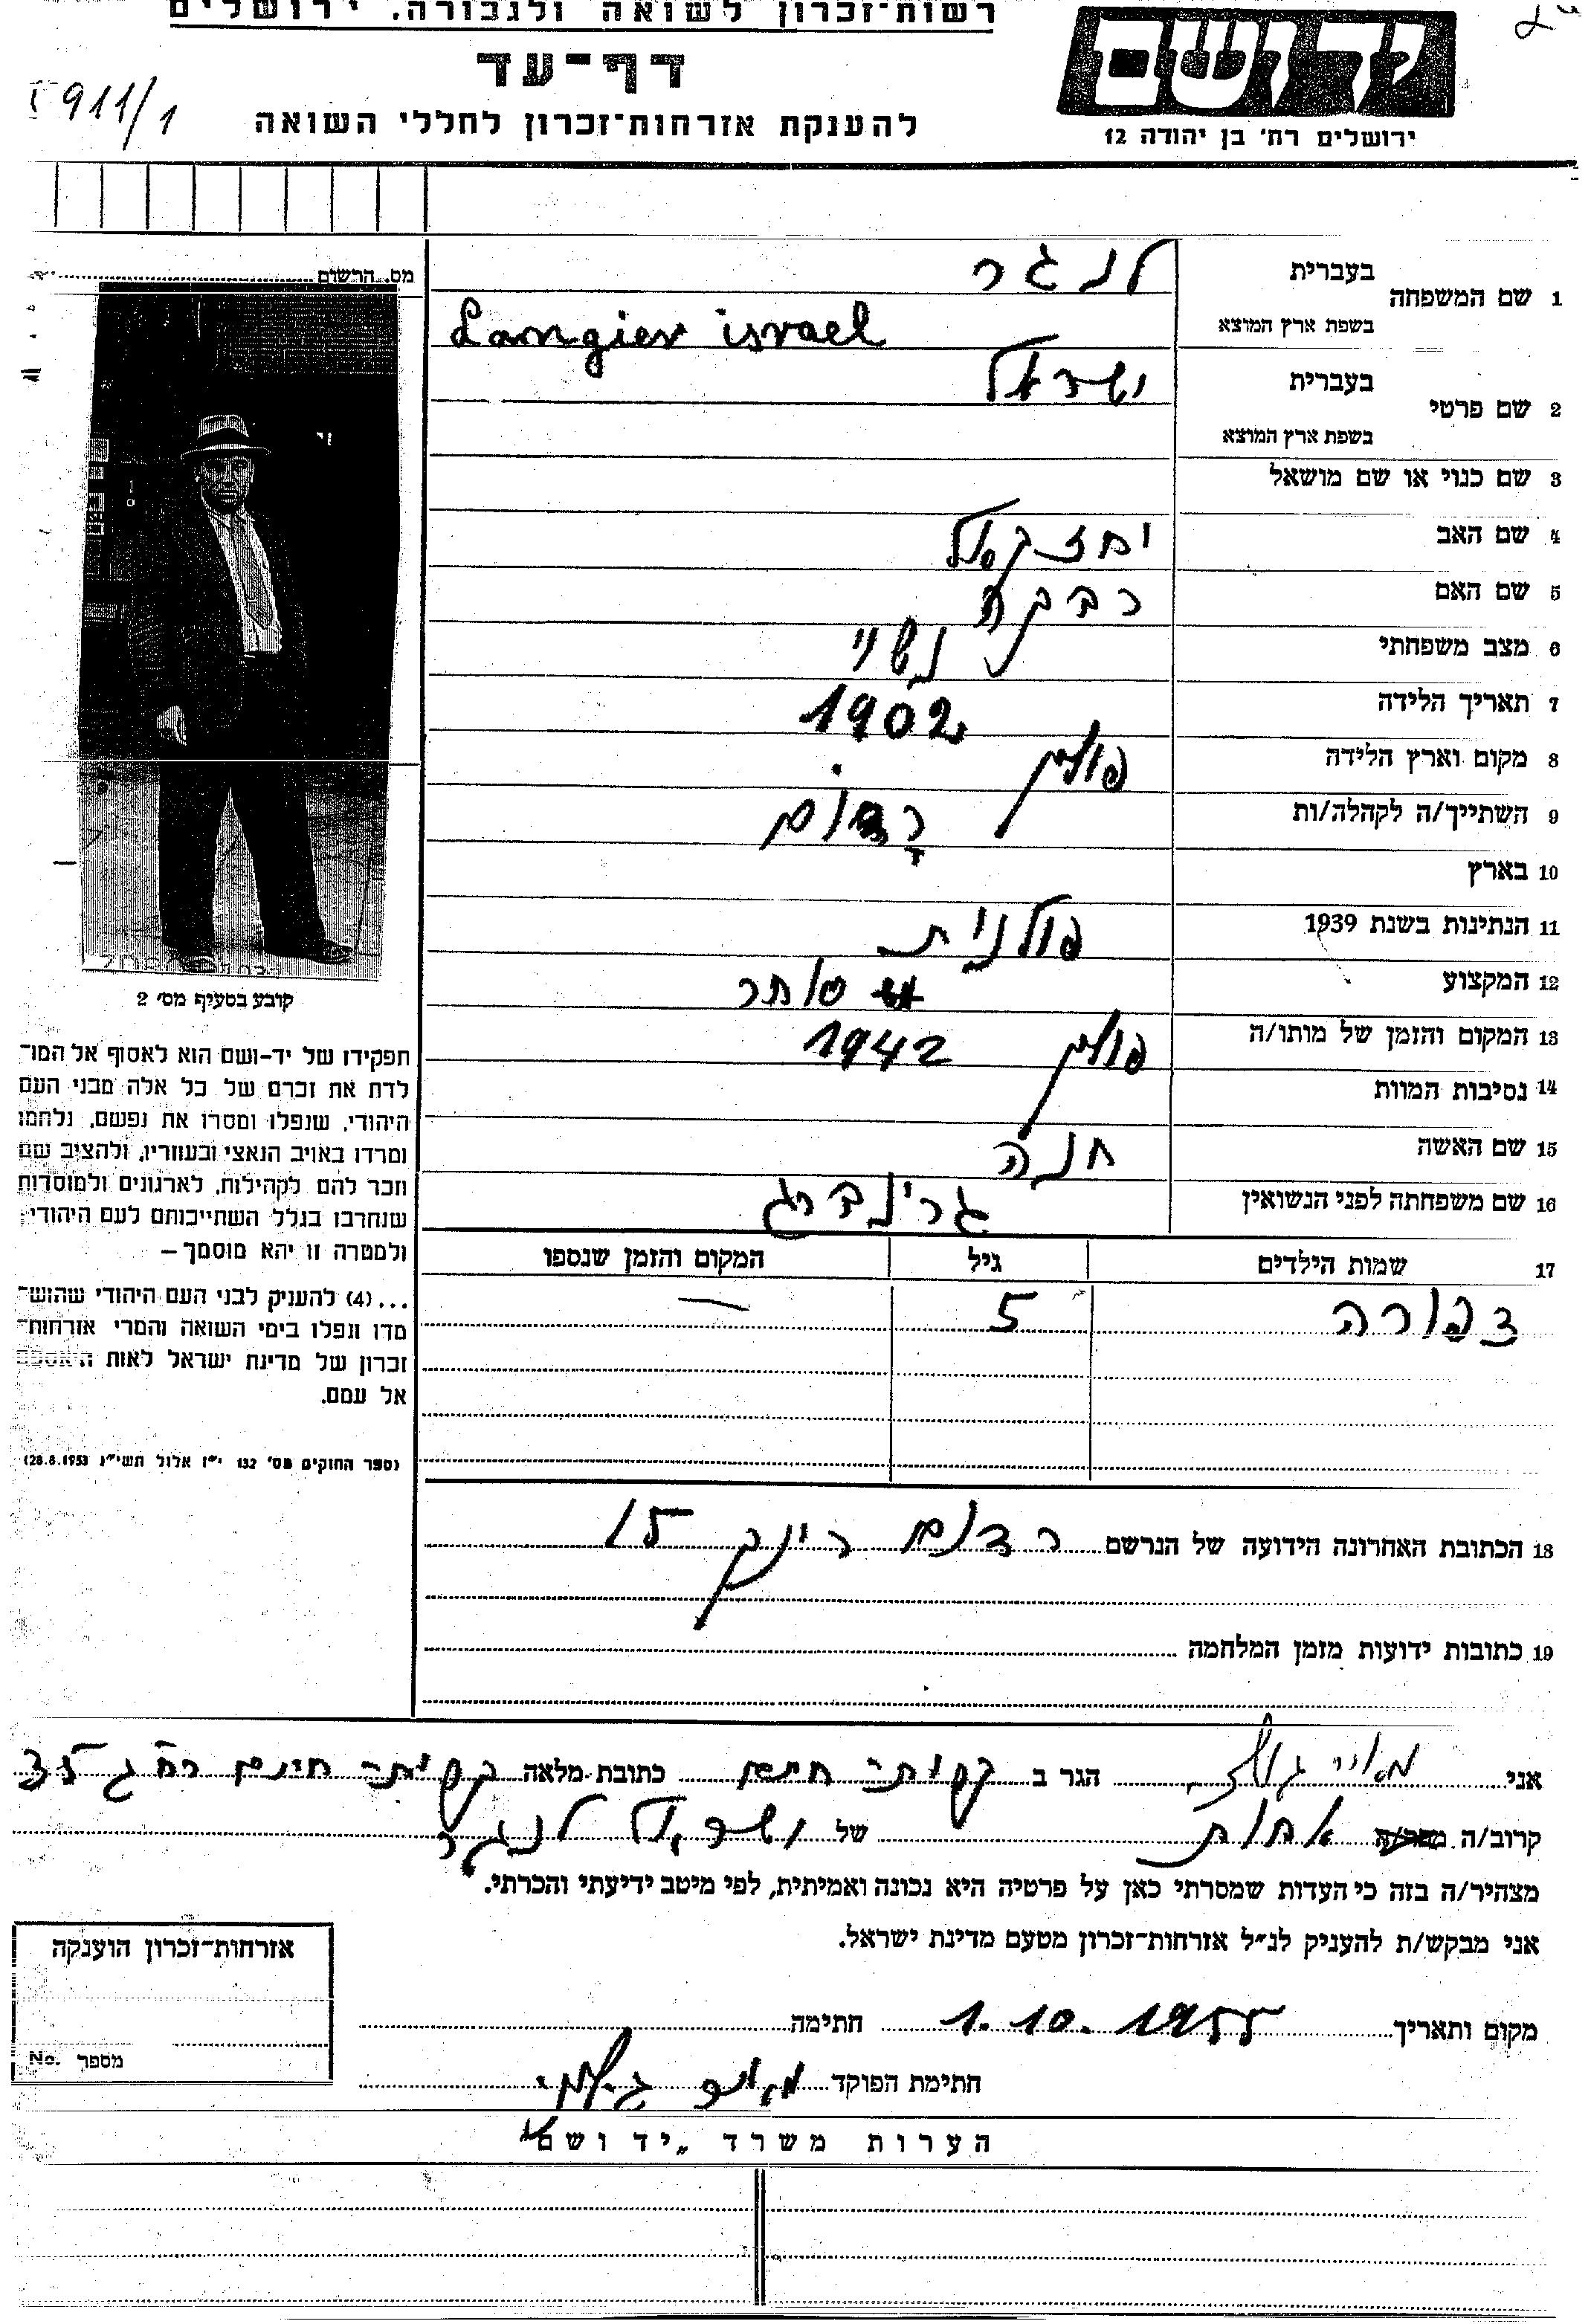 רשות־זכרון לשואה ולגבורה. ירושלים
יד ושם
דף־עד
911/1
להענקת אזרחות־זכרון לחללי השואה
ירושלים רח׳ בן יהודה 12
מס. הרשום
1 שם המשפחה בעברית לנגר
בשפת ארץ המוצא Langier israel
2 שם פרטי בעברית ישראל
בשפת ארץ המוצא
3 שם כנוי או שם מושאל
4 שם האב יחזקאל
5 שם האם רבקה
6 מצב משפחתי נשוי
7 תאריך הלידה 1902
8 מקום וארץ הלידה פולין
9 השתייך/ה לקהלה/ות רדום
10 בארץ
11 הנתינות בשנת 1939 פולנית
12 המקצוע סוחר
13 המקום והזמן של מותו/ה פולין 1942
14 נסיבות המוות
15 שם האשה חנה
16 שם משפחתה לפני הנשואין גרינברג
17 שמות הילדים גיל המקום והזמן שנספו
צפורה 5 —
קובע בסעיף מס׳ 2
תפקידו של יד־ושם הוא לאסוף אל המו־
לדת את זכרם של כל אלה מבני העם
היהודי, שנפלו ומסרו את נפשם, נלחמו
ומרדו באויב הנאצי ובעוזריו, ולהציב שם
וזכר להם לקהילות, לארגונים ולמוסדות
שנחרבו בגלל השתייכותם לעם היהודי
ולמטרה זו יהא מוסמך —
...(4) להעניק לבני העם היהודי שהוש־
מדו ונפלו בימי השואה והמרי אזרחות־
זכרון של מדינת ישראל לאות האספם
אל עמם.
(ספר החוקים מס׳ 132 י״ז אלול תשי״ג 28.8.1953)
18 הכתובת האחרונה הידועה של הנרשם רדום רינק 15
19 כתובות ידועות מזמן המלחמה
אני מאיר הגר ב קרית חיים כתובת מלאה קרית חיים רח ג 35
קרוב/ה אחות של ישראל לנגר
מצהיר/ה בזה כי העדות שמסרתי כאן על פרטיה היא נכונה ואמיתית, לפי מיטב ידיעתי והכרתי.
אני מבקש/ת להעניק לנ״ל אזרחות־זכרון מטעם מדינת ישראל.
אזרחות־זכרון הוענקה
מספר No.
מקום ותאריך 1.10.1955 חתימה
חתימת הפוקד מאיר
הערות משרד „יד ושם"